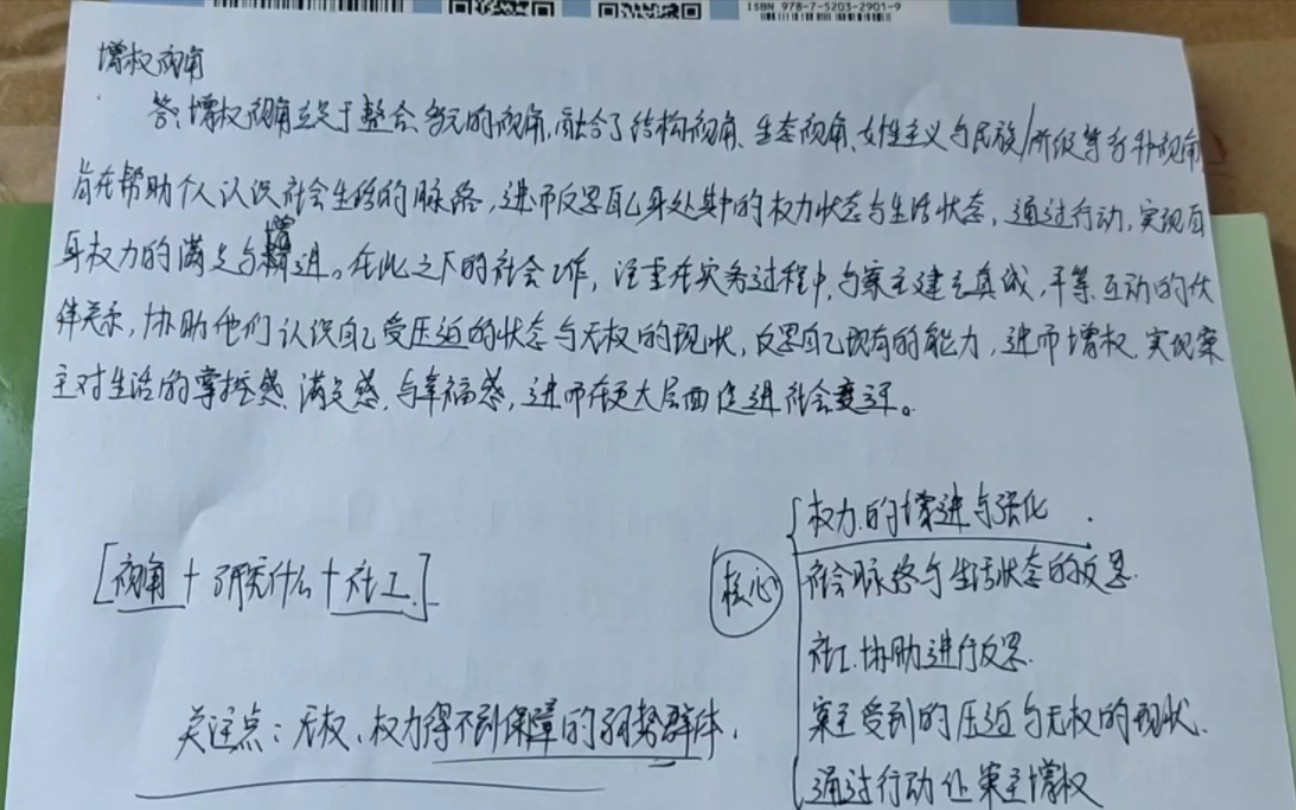 ISBN 978-7-5203-2901-9
增权视角
答:增权视角立足于整合、多元的视角,融合了结构视角、生态视角、女性主义与民族/阶级等多种视角
旨在帮助个人认识社会生活的脉络,进而反思自己身处其中的权力状态与生活状态,通过行动,实现自
身权力的满足与增进。在此之下的社会工作,注重在实务过程中,与案主建立真诚,平等、互动的伙
伴关系,协助他们认识自己受压迫的状态与无权的现状,反思自己现有的能力,进而增权,实现案
主对生活的掌控感、满足感、与幸福感,进而在更大层面促进社会变迁。
[视角+研究什么+社工.]
关注点:无权、权力得不到保障的弱势群体,
核心
权力的增进与强化.
社会脉络与生活状态的反思.
社工.协助进行反思.
案主受到的压迫与无权的现状.
通过行动让案主增权